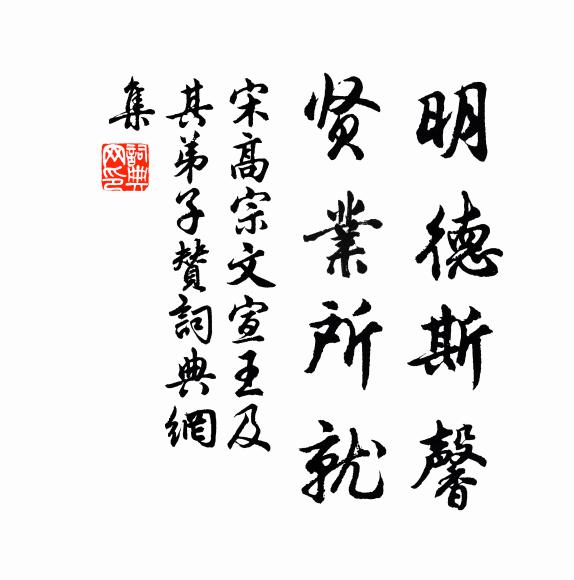 明德斯馨
贤業所就
宋高宗文宣王及
其弟子贊詞典網
集
詞典
网印